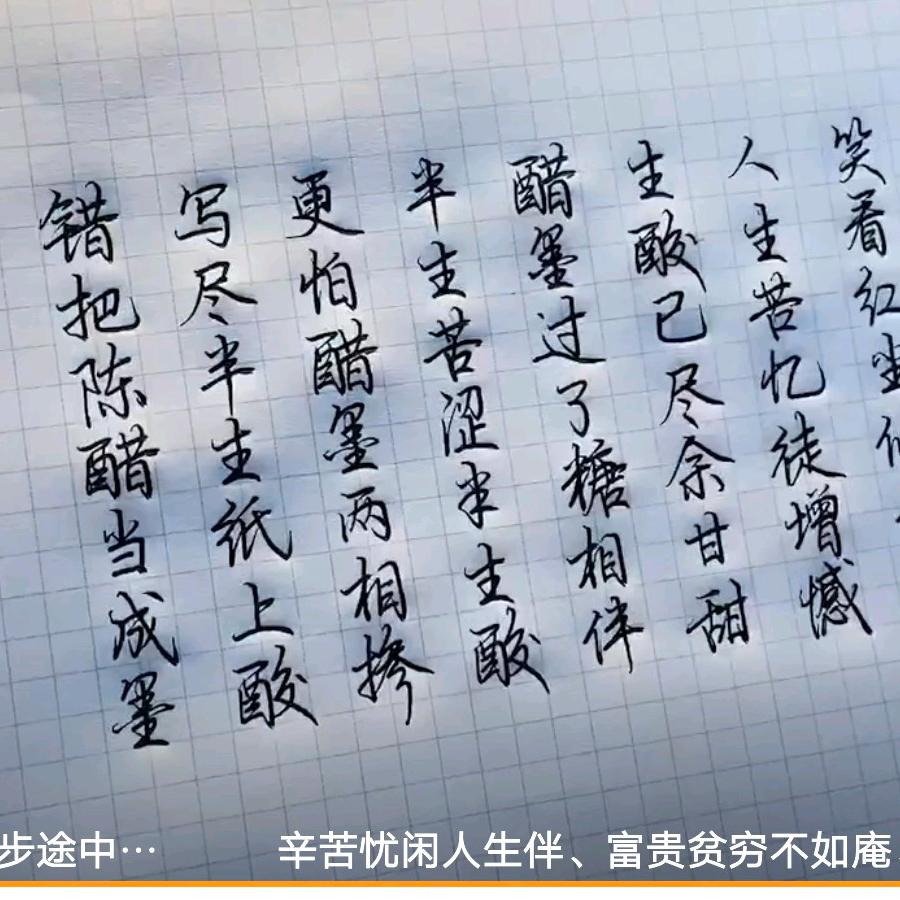 错把陈醋当成墨
写尽半生纸上酸
更怕醋墨两相掺
半生苦涩半生酸
醋墨过了糖相伴
生酸已尽余甘甜
人生苦忆徒增憾
笑看红尘
步途中…
辛苦忧闲人生伴、富贵贫穷不如庵、